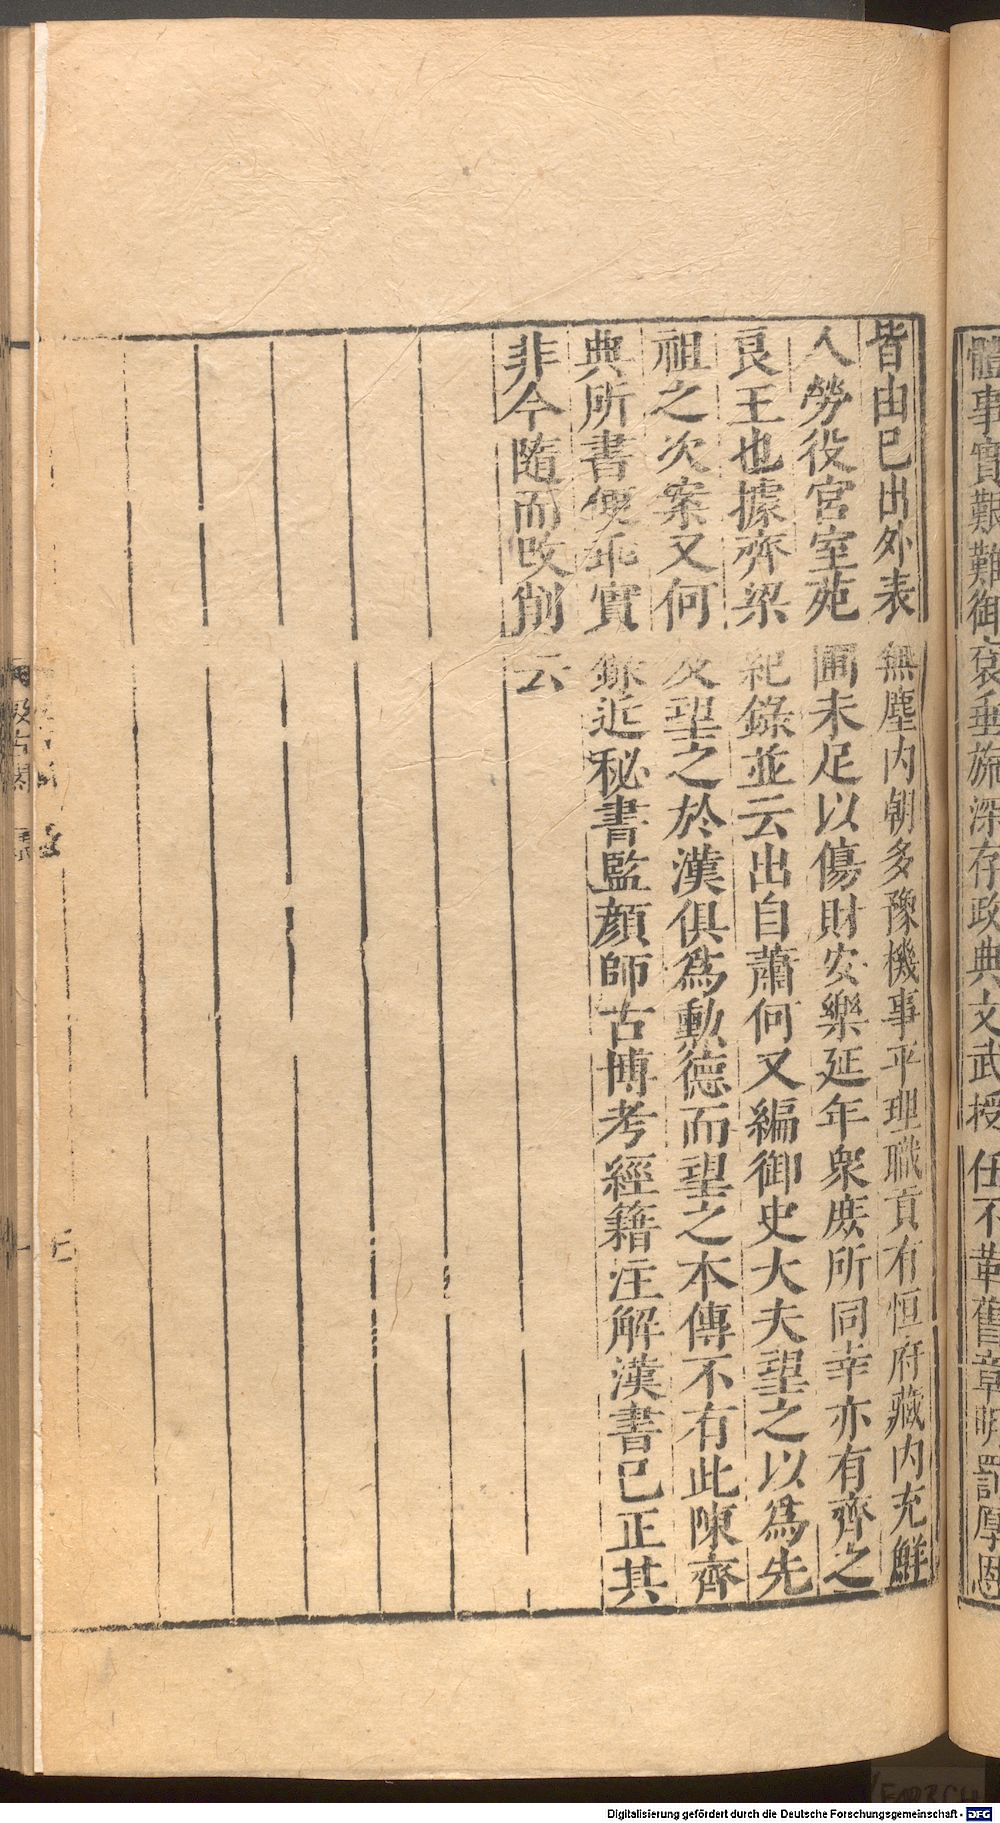 體事實艱難御衮垂旒深存政典文武授任不革舊章明罰厚恩
皆由已出外表無塵內朝多豫機事平理職貢有恒府藏內充鮮
人勞役宮室苑囿未足以傷財安樂延年衆庶所同幸亦有齊之
良王也據齊梁紀錄並云出自蕭何又編御史大夫望之以爲先
祖之次案又何及望之於漢俱爲勳德而望之本傳不有此陳齊
典所書便乖實錄近秘書監顏師古博考經籍注解漢書已正其
非今隨而改削云
汲古閣
Digitalisierung gefördert durch die Deutsche Forschungsgemeinschaft - DFG